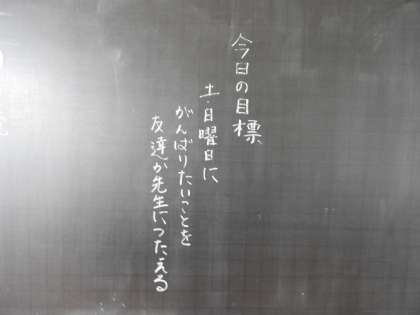 今日の目標
土・日曜日に
がんばりたいことを
友達か先生につたえる